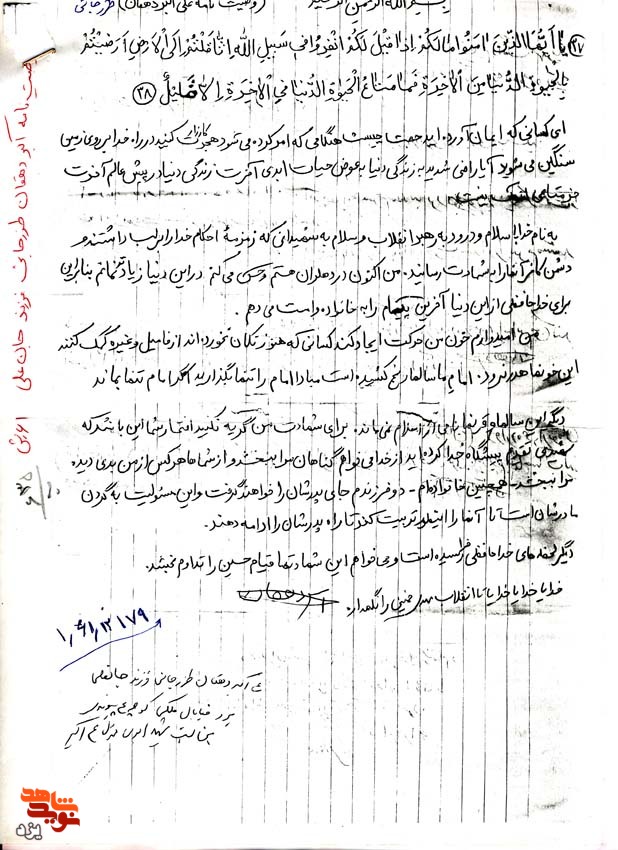 بسم الله الرحمن الرحیم (وصیت نامه علی اکبر دهقان) طزرجانی
۳۷ یا أَیُّهَا الَّذینَ امَنُوا مالَکُمْ إِذا قیلَ لَکُمُ انْفِرُوا فی سَبیلِ اللهِ اثّاقَلْتُمْ اِلَی الْاَرْضِ اَرَضیتُمْ
بِالْحَیوةِ الدُّنْیا مِنَ الْاخِرَةِ فَما مَتاعُ الْحَیوةِ الدُّنْیا فِی الْاخِرَةِ اِلّا قَلیلٌ ۳۸
ای کسانی که ایمان آورده اید جهت چیست هنگامی که امر کرده می شود کنید در راه خدا بر روی زمین
سنگین می شوید آیا راضی شدید به زندگی دنیا به عوض حیات ابدی آخرت زندگی دنیا در پیش عالم آخرت
به نام خدا با سلام و درود به رهبر انقلاب و سلام به شهیدانی که زمزمهٔ احکام خدا را بر لب داشتند و
دشمن کافر آنها را به شهادت رسانید. من اکنون در دهلران هستم و حس می کنم در این دنیا زیاد نمانم بنابراین
برای خداحافظی از این دنیا آخرین پیام را به خانواده و امت می دهم.
من امیدوارم خون من حرکت ایجاد کند کسانی که هنوز تکان نخورده اند از فامیل و غیره کمک کنند
این خونها هدر نرود. امام ما سالها رنج کشیده است مبادا امام را تنها بگذارید اگر امام تنها بماند
دیگر این سالها و قرنها نامی از اسلام نمی ماند. برای شهادت من گریه نکنید افتخار شما این باشد که
شهیدی تقدیم پیشگاه خدا کرده اید از خدا می خواهم گناهان مرا ببخشد و از شما هر کس از من بدی دیده
مرا ببخشد همچنین خانواده ام - دو فرزندم جای پدرشان را خواهند گرفت و این مسئولیت به گردن
مادرشان است تا آنها را اینطور تربیت کند تا راه پدرشان را ادامه دهند.
دیگر لحظه های خداحافظی فرا رسیده است و می خواهم این شهادتها قیام حسین را تداوم بخشد.
خدایا خدایا تا انقلاب مهدی خمینی را نگهدار.
۱,۶۱,۱۲,۱۷۹
ع اکبر دهقان طزرجانی فرزند جانعلی
یزد خیابان ملکی کوچه
وصیت نامه اکبر دهقان طزرجانی فرزند جان علی
شاهد
نوید
یزد